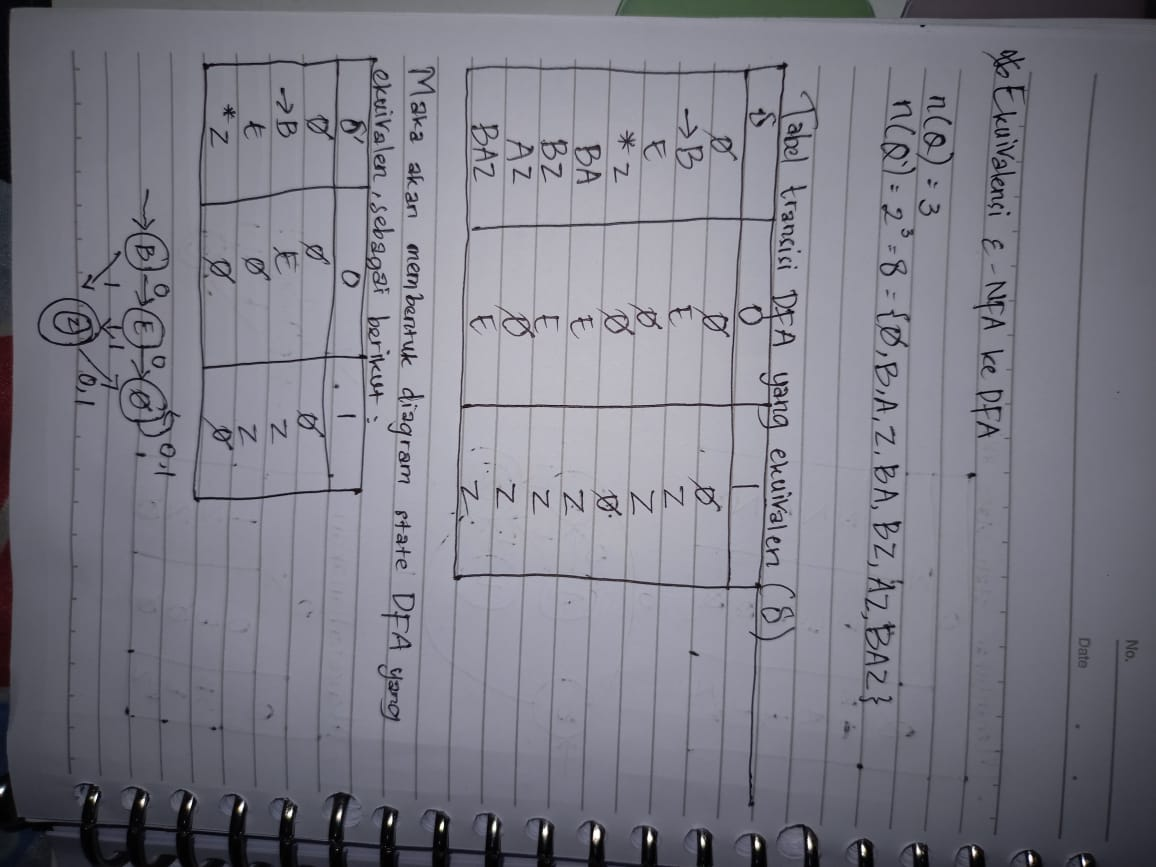 No.
Date
Ekuivalensi ε-NFA ke DFA
n(Q) = 3
n(Q') = 2³ = 8 = {Ø, B, A, Z, BA, BZ, AZ, BAZ}
Tabel transisi DFA yang ekuivalen (δ)
δ 0 1
Ø Ø Ø
→B E Z
E Ø Z
*Z Ø Ø
BA E Z
BZ E Z
AZ Ø Z
BAZ E Z
Maka akan membentuk diagram state DFA yang
ekuivalen, sebagai berikut :
δ' 0 1
Ø Ø Ø
→B E Z
E Ø Z
*Z Ø Ø
→ B 0 → E 0 → Ø 0,1
1 1
Z 0,1